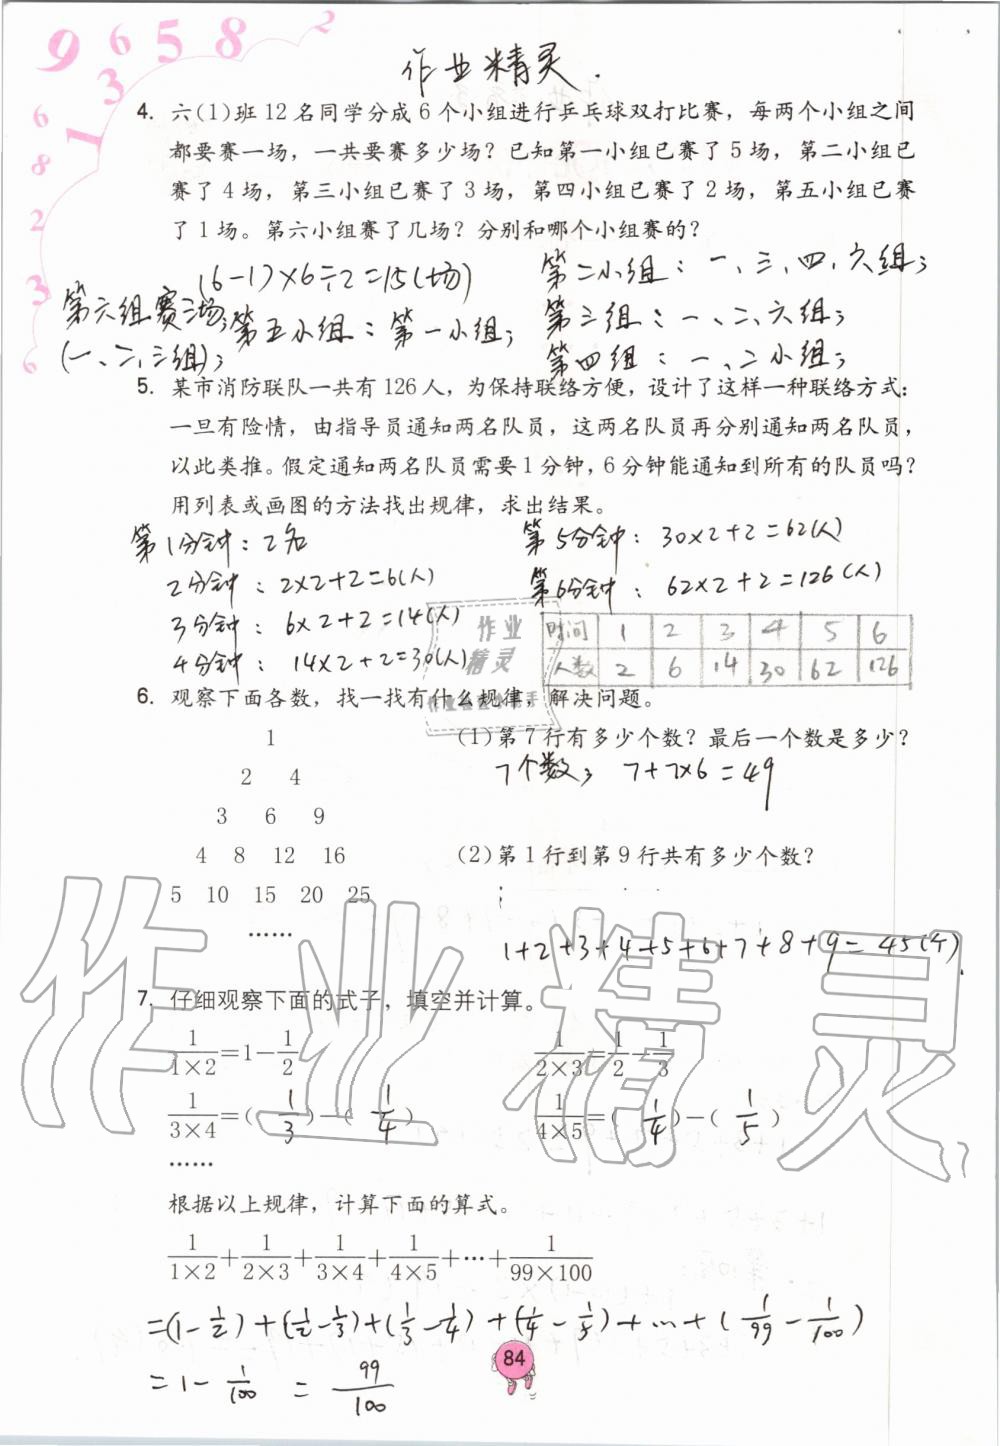 9 6 5 8 2
3
1
6
8
2
3
6
作业精灵.
4. 六(1)班12名同学分成6个小组进行乒乓球双打比赛，每两个小组之间
都要赛一场，一共要赛多少场？已知第一小组已赛了5场，第二小组已
赛了4场，第三小组已赛了3场，第四小组已赛了2场，第五小组已赛
了1场。第六小组赛了几场？分别和哪个小组赛的？
(6-1)×6÷2=15(场)
第二小组：一、三、四、六组；
第六组赛三场；
第五小组：第一小组；
第三组：一、二、六组；
(一、二、三组)；
第四组：一、二小组；
5. 某市消防联队一共有126人，为保持联络方便，设计了这样一种联络方式：
一旦有险情，由指导员通知两名队员，这两名队员再分别通知两名队员，
以此类推。假定通知两名队员需要1分钟，6分钟能通知到所有的队员吗？
用列表或画图的方法找出规律，求出结果。
第1分钟：2名
第5分钟：30×2+2=62(人)
2分钟：2×2+2=6(人)
第6分钟：62×2+2=126(人)
3分钟：6×2+2=14(人)
4分钟：14×2+2=30(人)
时间 1 2 3 4 5 6
人数 2 6 14 30 62 126
作业
精灵
6. 观察下面各数，找一找有什么规律，解决问题。
1
(1)第7行有多少个数？最后一个数是多少？
7个数； 7+7×6=49
2 4
3 6 9
4 8 12 16
(2)第1行到第9行共有多少个数？
5 10 15 20 25
……
1+2+3+4+5+6+7+8+9=45(个)
作业精灵
7. 仔细观察下面的式子，填空并计算。
1/(1×2)=1-1/2 1/(2×3)=1/2-1/3
1/(3×4)=(1/3)-(1/4) 1/(4×5)=(1/4)-(1/5)
……
根据以上规律，计算下面的算式。
1/(1×2)+1/(2×3)+1/(3×4)+1/(4×5)+…+1/(99×100)
=(1-1/2)+(1/2-1/3)+(1/3-1/4)+(1/4-1/5)+…+(1/99-1/100)
=1-1/100 =99/100
84